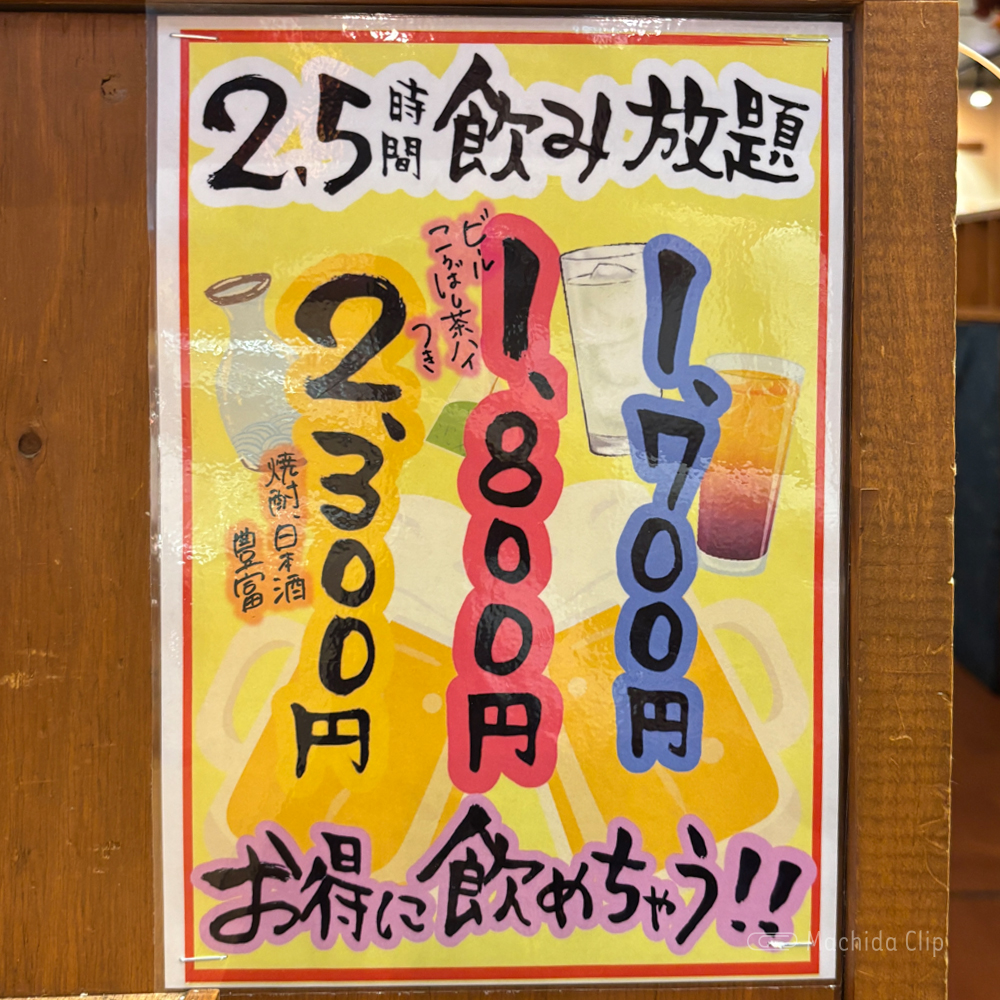 2.5時間 飲み放題
1,700円
1,800円
ビール
こうばし茶ハイ
つき
2,300円
焼酎、日本酒
豊富
お得に飲めちゃう!!
Machida Clip